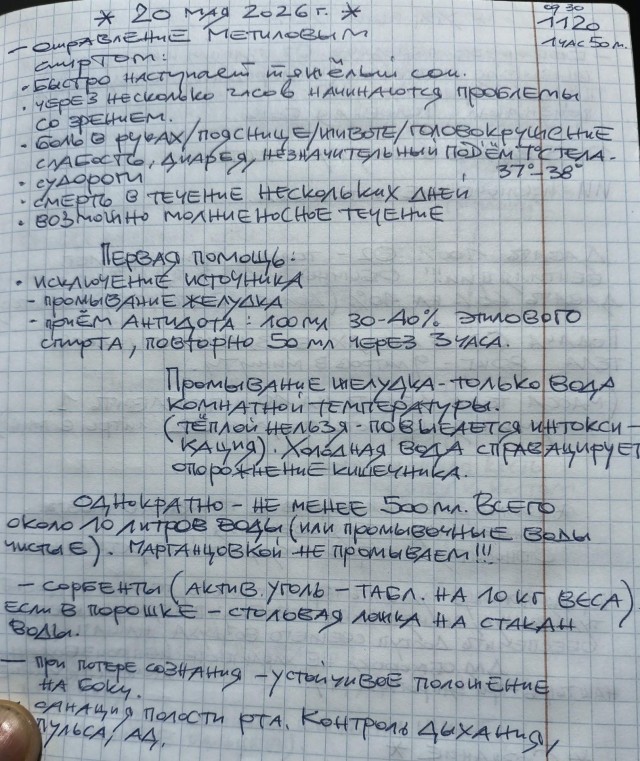 * 20 мая 2026 г. *
09 30
1120
1 час 50 м.
– отравление метиловым
спиртом:
• быстро наступает тяжёлый сон.
• через несколько часов начинаются проблемы
со зрением.
• боль в руках/пояснице/животе/головокружение
слабость, диарея, незначительный подъём t° тела.
37°-38°
• судороги
• смерть в течение нескольких дней
• возможно молниеносное течение
Первая помощь:
• исключение источника
– промывание желудка
– приём антидота: 100 мл 30-40% этилового
спирта, повторно 50 мл через 3 часа.
Промывание желудка - только вода
комнатной температуры.
(тёплой нельзя - повышается интокси-
кация). Холодная вода спрвацирует
опорожнение кишечника.
Однократно – не менее 500 мл. Всего
около 10 литров воды (или промывочные воды
чистые). Марганцовкой не промываем!!!
– сорбенты (актив. уголь – табл. на 10 кг веса)
если в порошке – столовая ложка на стакан
воды.
– при потере сознания – устойчивое положение
на боку.
санация полости рта. Контроль дыхания,
пульса, АД.